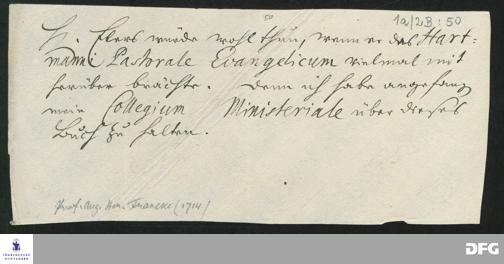 50
1a/2B : 50
H. Elers würde wohl thun, wenn er des Hart-
manni Pastorale Evangelicum vielmal mit
herüber brächte. Denn ich habe angefangen
mein Collegium Ministeriale über dieses
Buch zu halten.
Prof. Aug. Herm. Francke (1714)
FRANCKESCHE
STIFTUNGEN
DFG